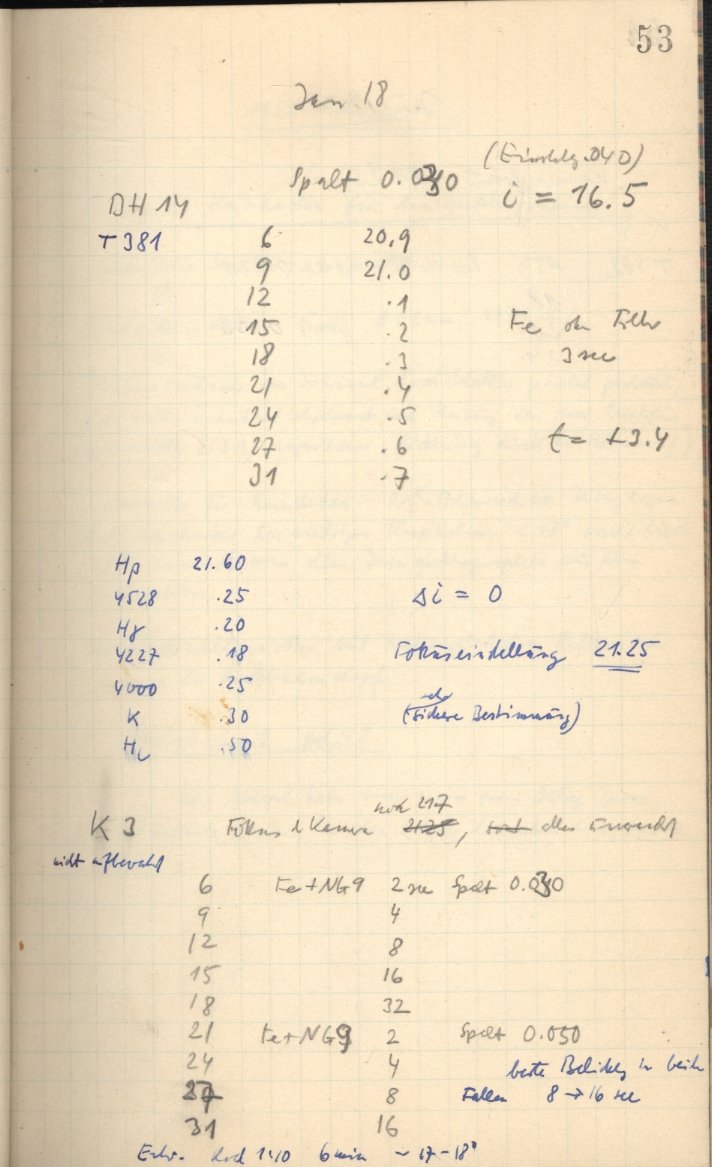 53
Jan 18
(Einstellg .040)
Spalt 0.030 i = 16.5
DH 14
T381 6 20.9
9 21.0
12 .1
15 .2 Fe ohn Filter
18 .3 3 sec
21 .4
24 .5
27 .6 t = +3.4
31 .7
Hβ 21.60
4528 .25 Δi = 0
Hγ .20
4227 .18 Fokuseinstellung 21.25
4000 .25
K .30 (sichere Bestimmung)
H .50
noch 217
K 3 Fokus d Kamera 2125, alles
nicht aufbewahrt
6 Fe+NG9 2 sec Spalt 0.030
9 4
12 8
15 16
18 32
21 Fe+NG9 2 Spalt 0.050
24 4 beste Belichtg in beiden
27 8 Fällen 8 → 16 sec
31 16
Entw. Rod 1:10 6 min ~ 17-18°